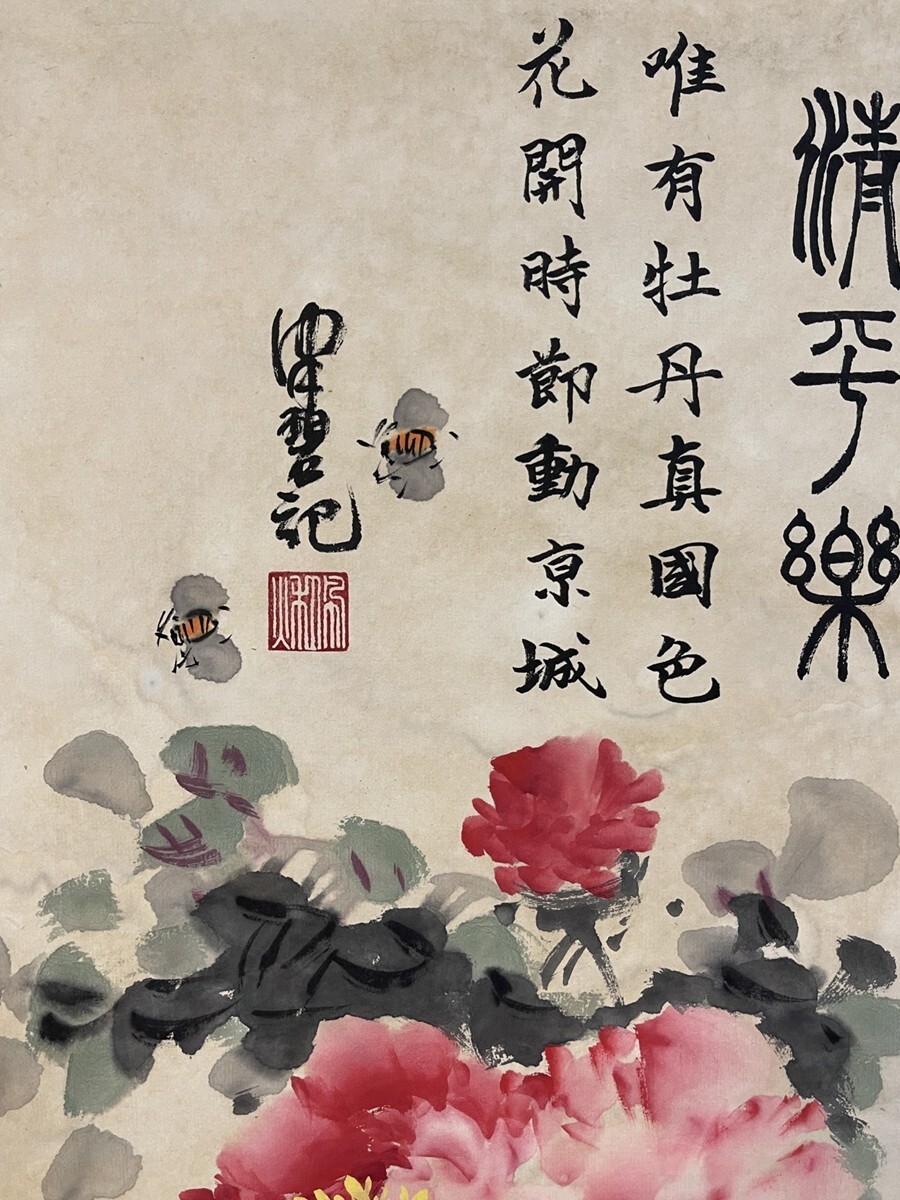 清平樂
唯有牡丹真國色
花開時節動亰城
碧記